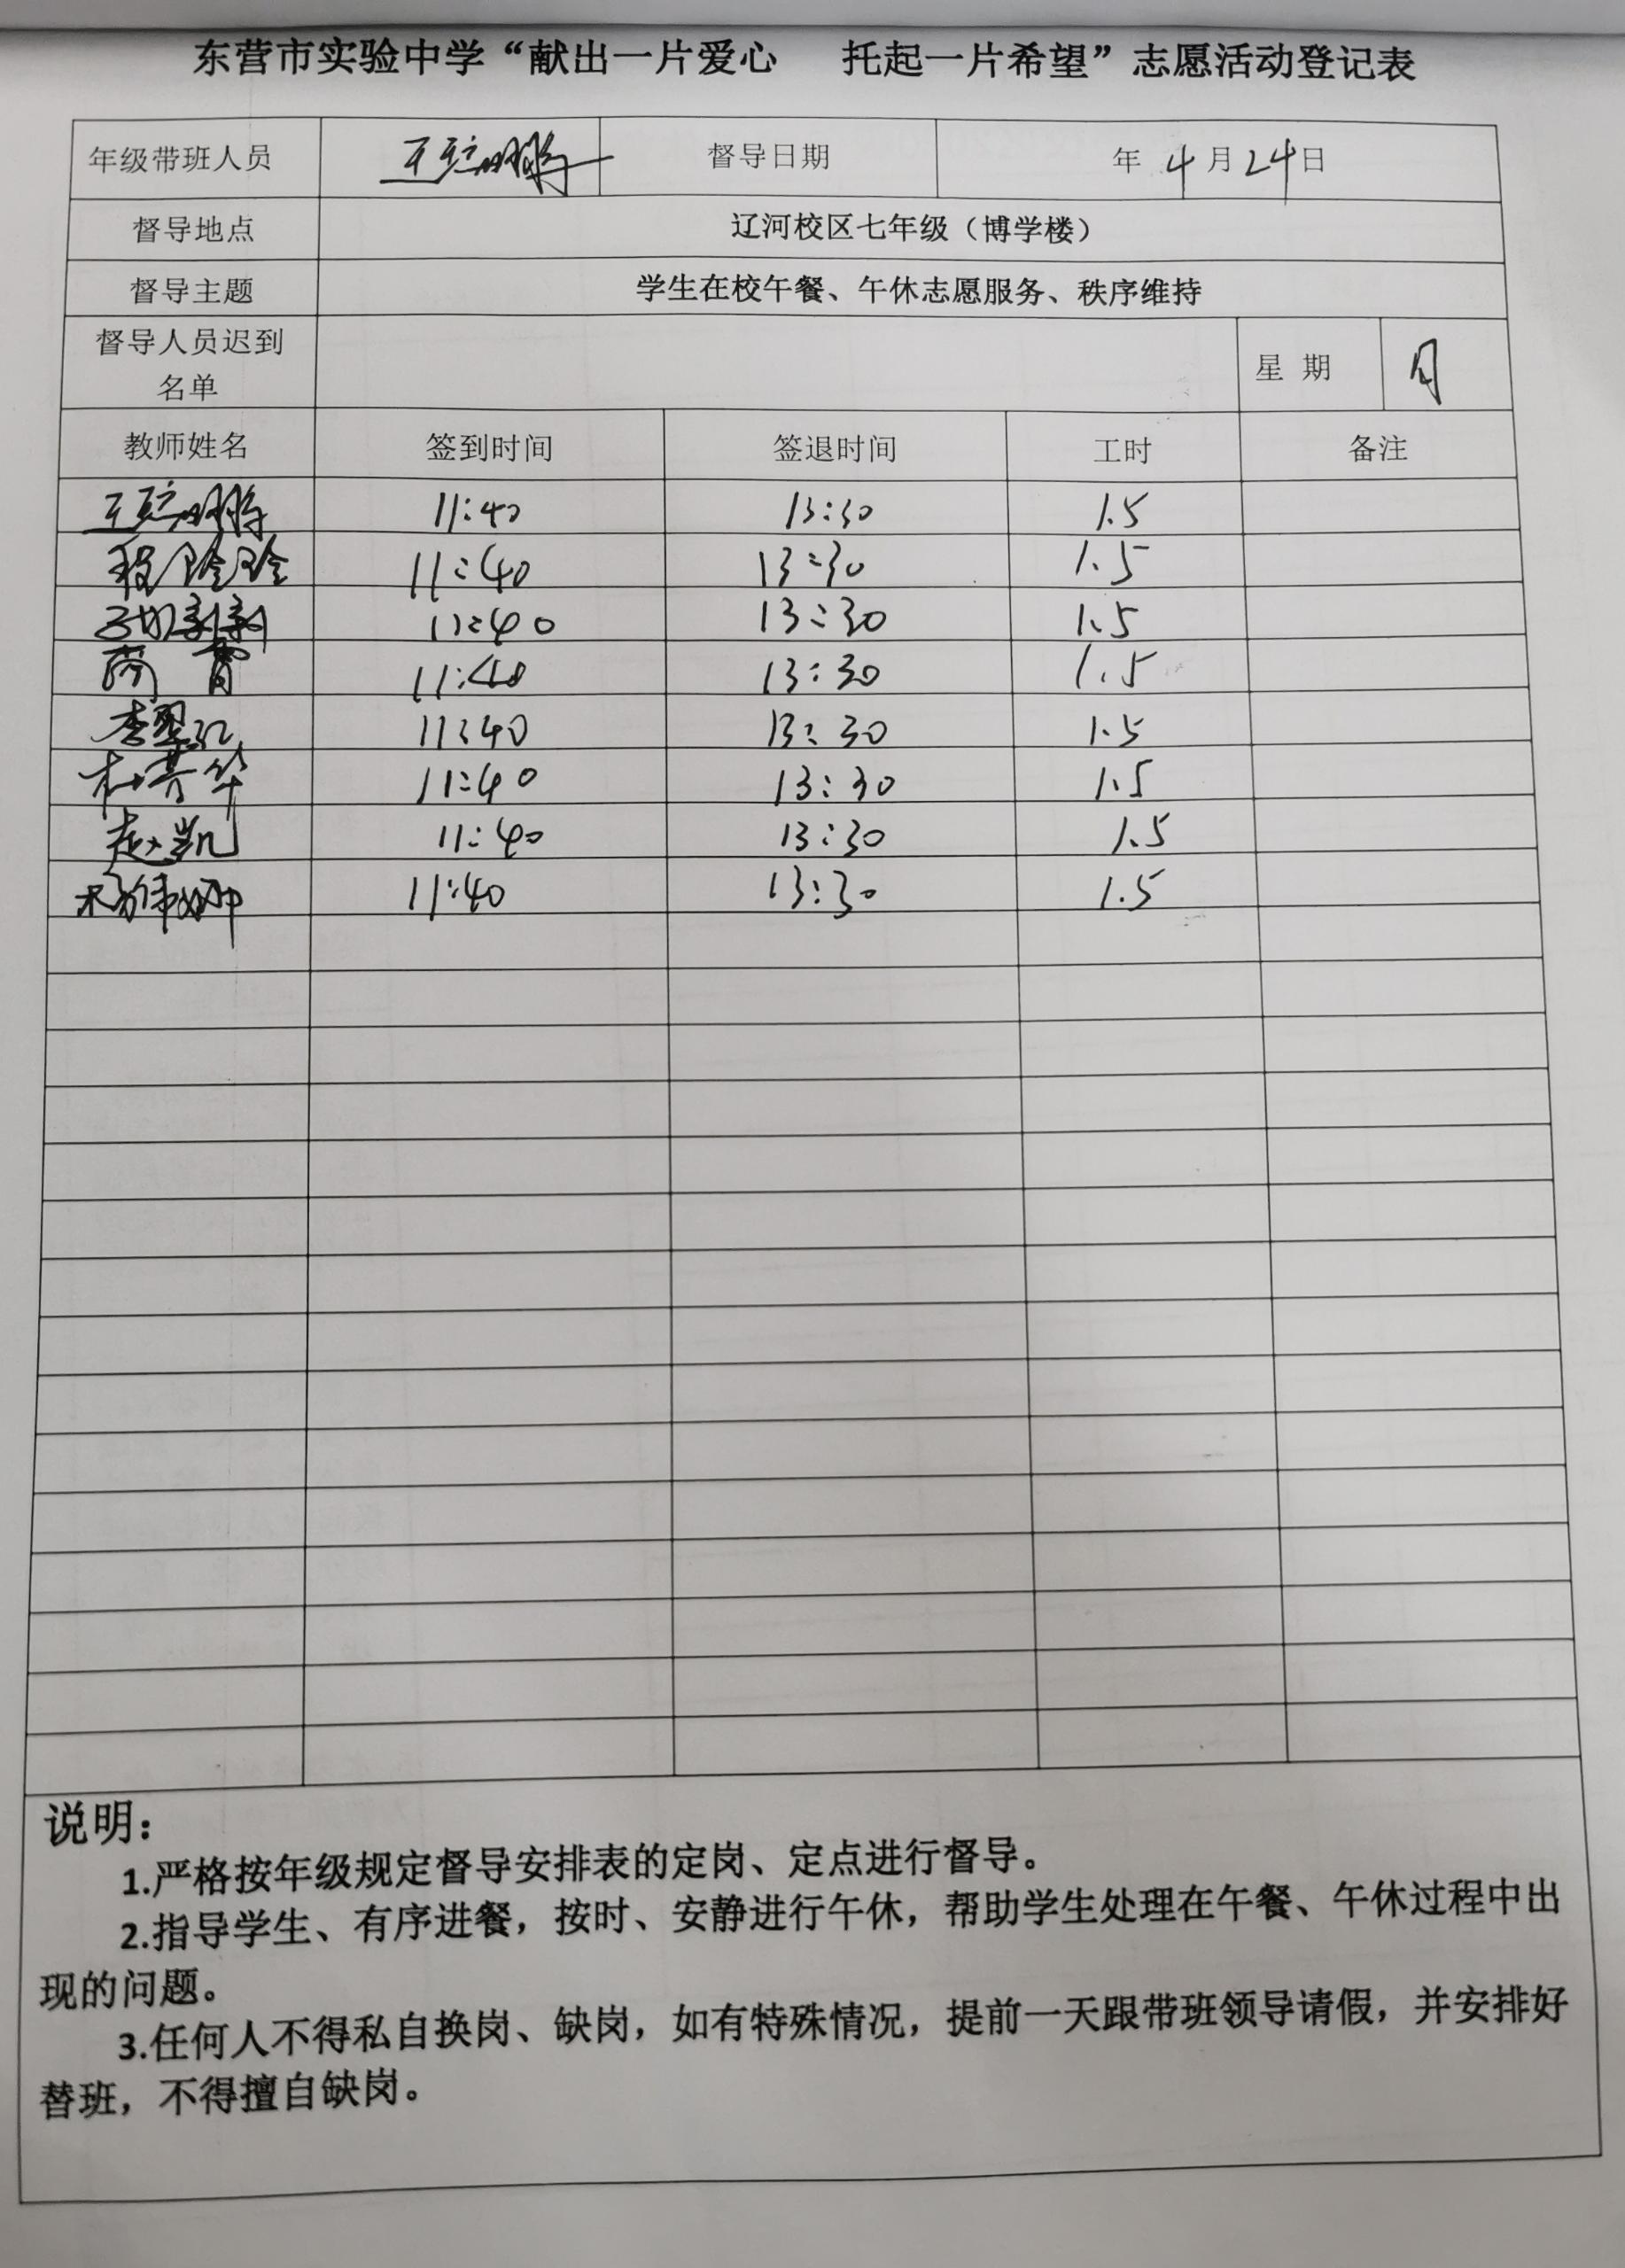 东营市实验中学“献出一片爱心 托起一片希望”志愿活动登记表
年级带班人员 督导日期 年 4 月 24 日
督导地点 辽河校区七年级（博学楼）
督导主题 学生在校午餐、午休志愿服务、秩序维持
督导人员迟到
名单 星 期
教师姓名 签到时间 签退时间 工时 备注
11:40 13:30 1.5
11:40 13:30 1.5
11:40 13:30 1.5
11:40 13:30 1.5
11:40 13:30 1.5
11:40 13:30 1.5
赵凯 11:40 13:30 1.5
11:40 13:30 1.5
说明：
1.严格按年级规定督导安排表的定岗、定点进行督导。
2.指导学生、有序进餐，按时、安静进行午休，帮助学生处理在午餐、午休过程中出
现的问题。
3.任何人不得私自换岗、缺岗，如有特殊情况，提前一天跟带班领导请假，并安排好
替班，不得擅自缺岗。